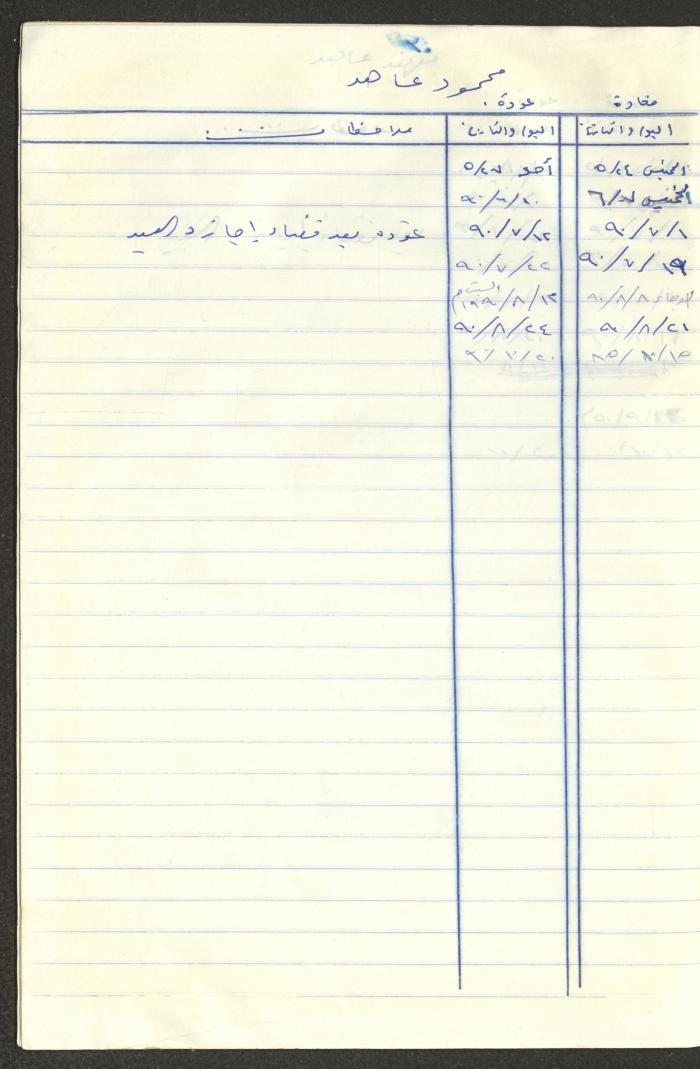 محمود عاهد
مغادرة عودة
اليوم والتاريخ اليوم والتاريخ ملاحظات
الخميس ٥/٢٤ أحد ٥/٢٧
الخميس ٦/٧ ٩٠/٦/١٠
٩٠/٧/١ ٩٠/٧/١٢ عوده بعد قضاء إجازة العيد
٩٠/٧/١٩ ٩٠/٧/٢٢
الاربعاء ٩٠/٨/٨ السبت ١٩٩٠/٨/١٢م
٩٠/٨/٢١ ٩٠/٨/٢٤